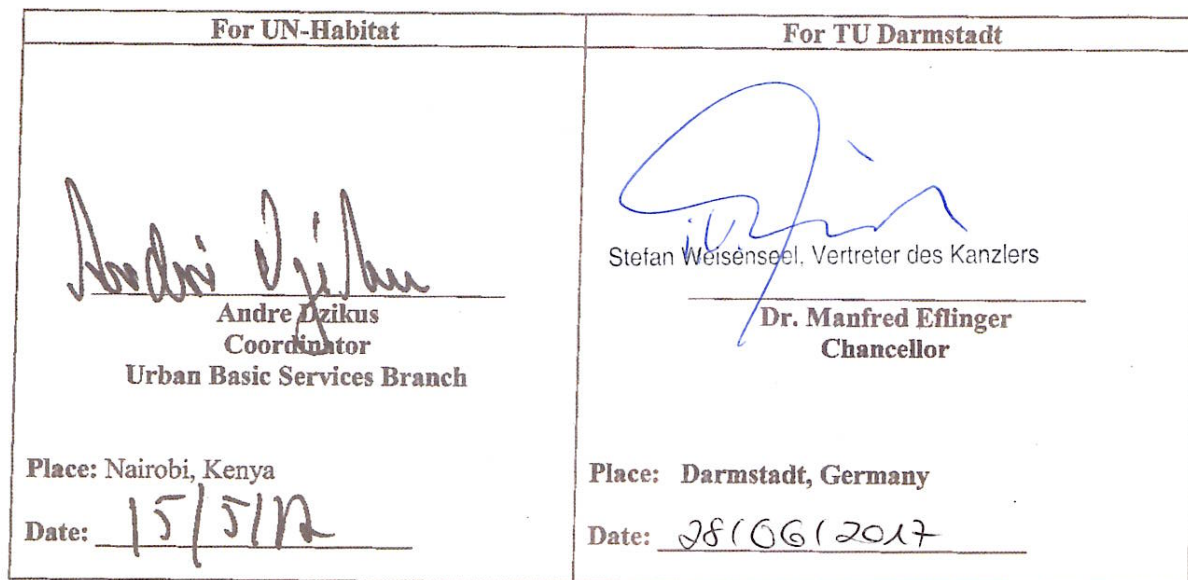 For UN-Habitat
Andre Dzikus
Coordinator
Urban Basic Services Branch
Place: Nairobi, Kenya
Date: 15/5/17
For TU Darmstadt
i.V.
Stefan Weisenseel, Vertreter des Kanzlers
Dr. Manfred Eflinger
Chancellor
Place: Darmstadt, Germany
Date: 28/06/2017